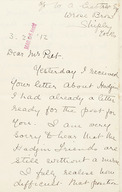 Wrose Brow
Shipley
Yorks
3. 2. '12
Dear Mr Pist.
Yesterday I received
your letter about Hodgin
I had already a letter
ready for the post for
you. I am very
sorry to hear that the
Hodgin friends are
still without a nurse
I fully realise how
difficult that position